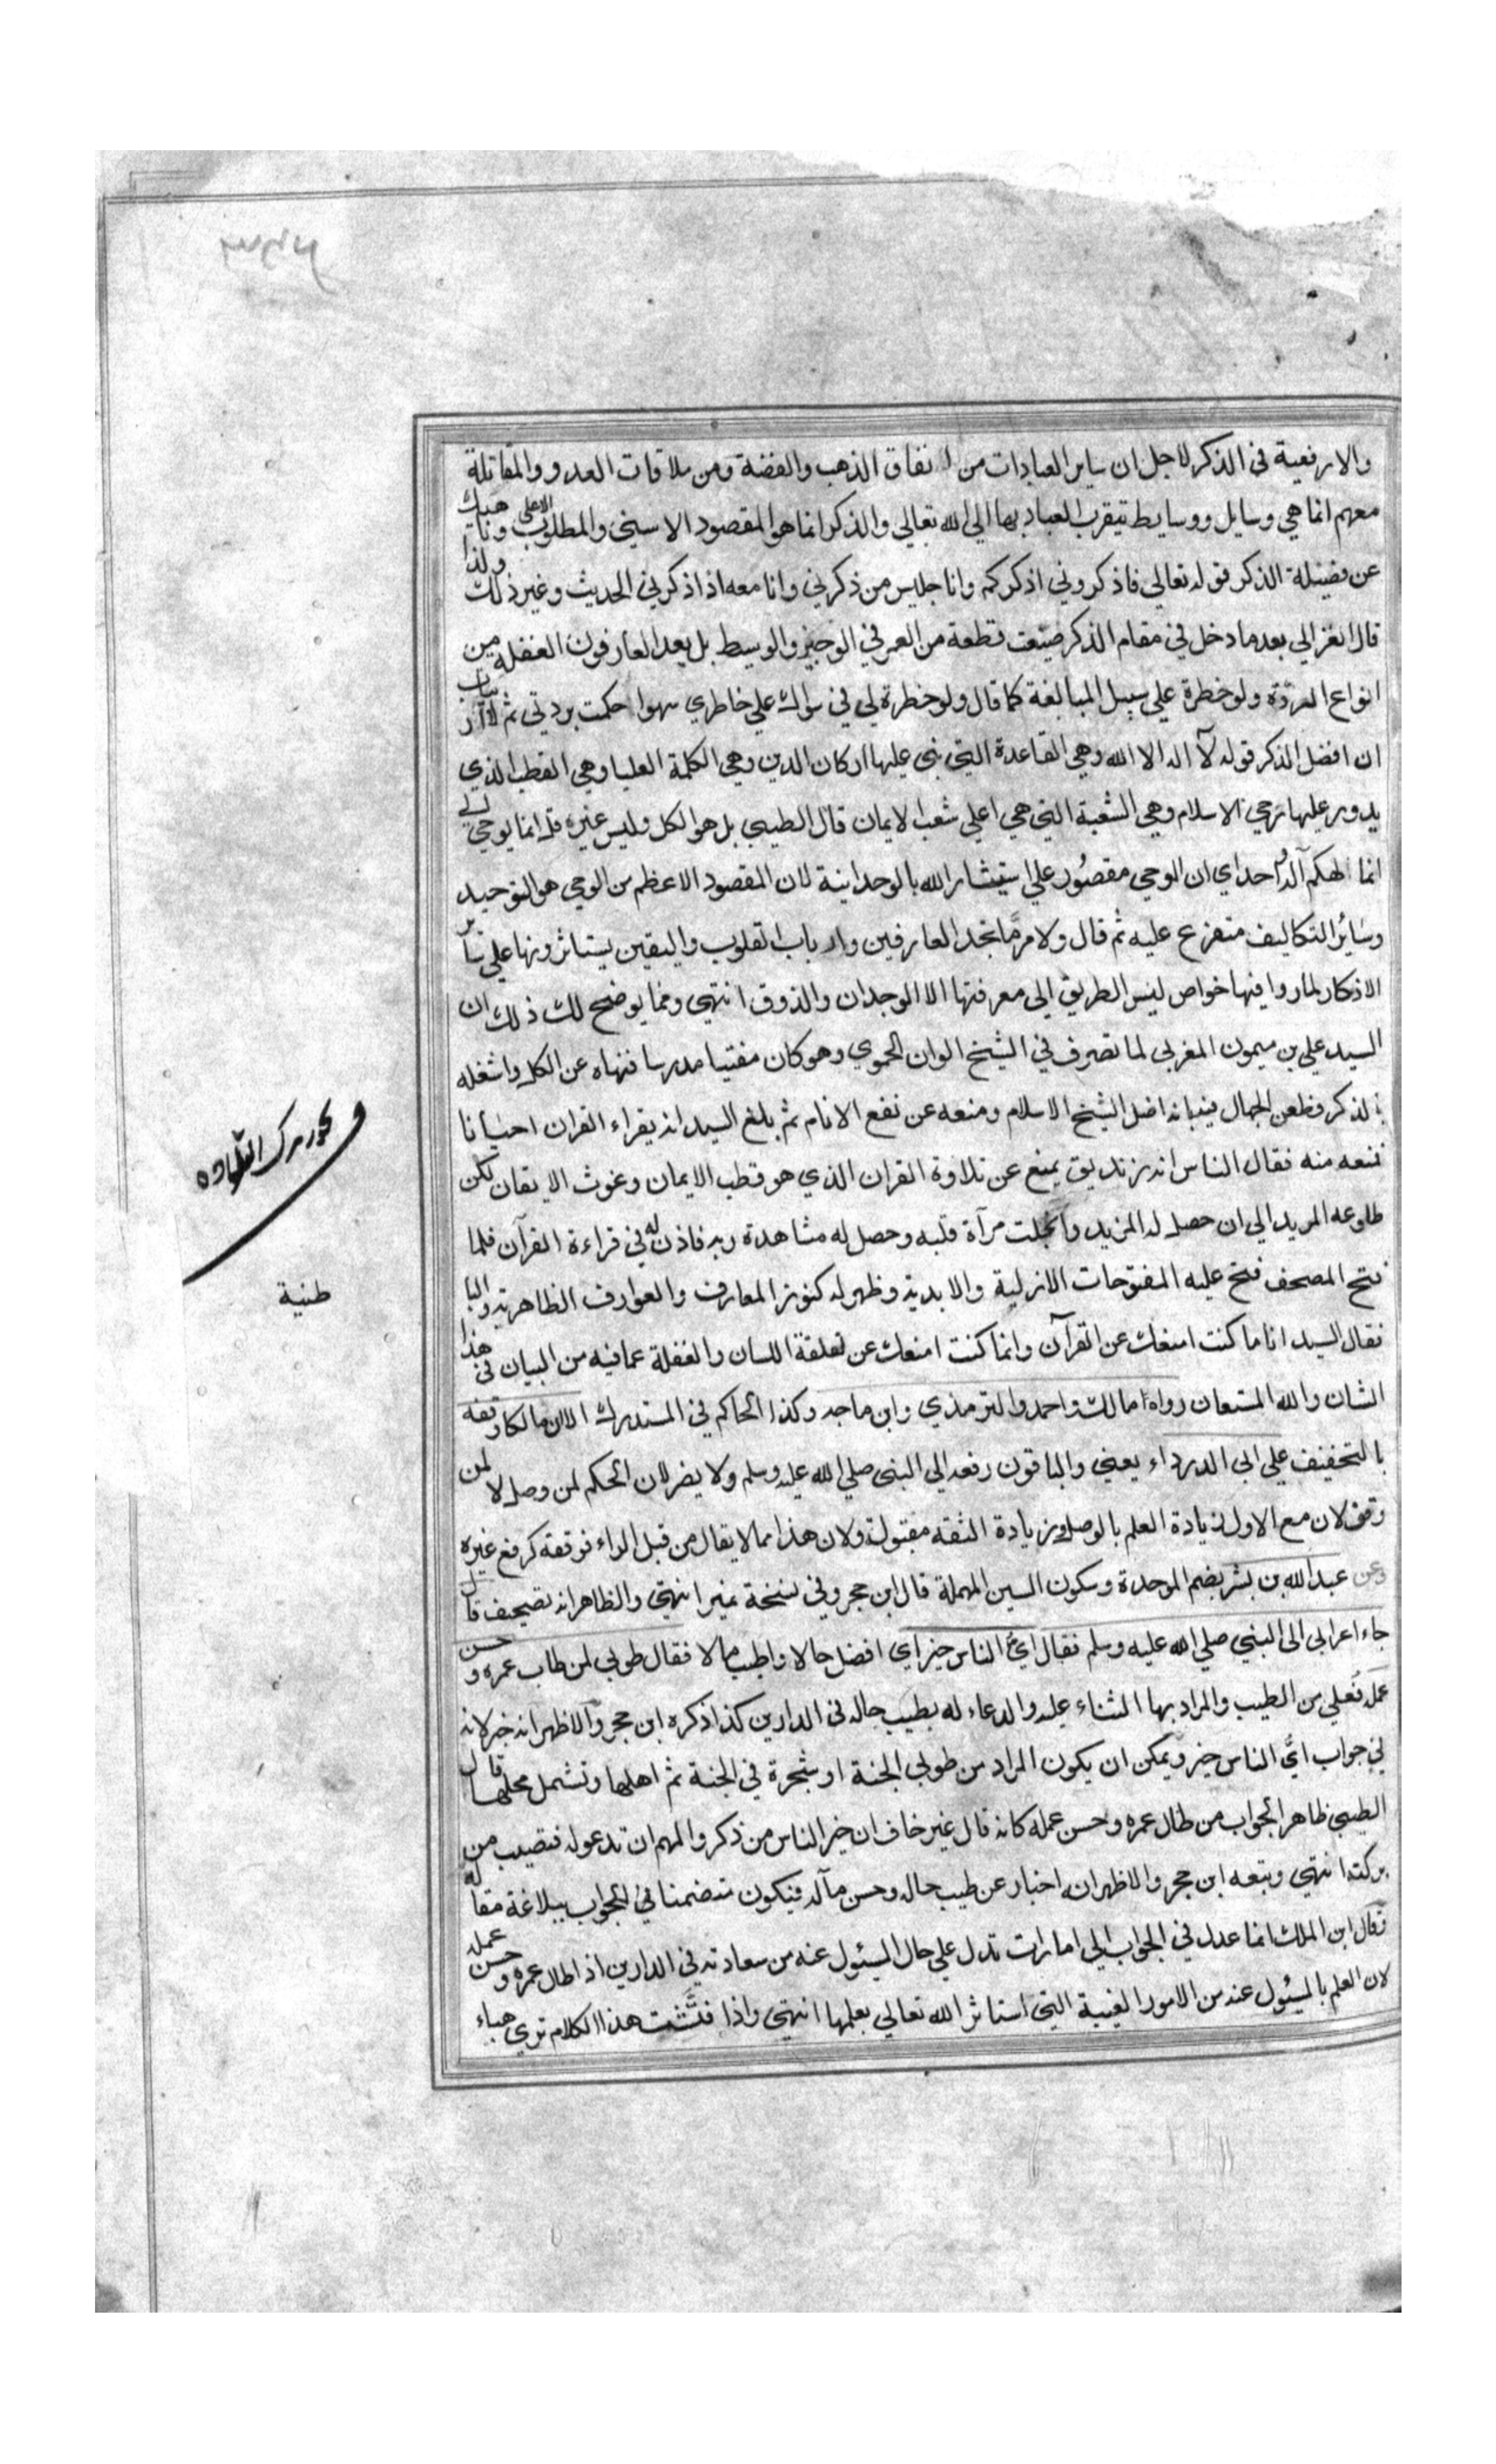 والارفعية في الذكر لاجل ان ساير العبادات من انفاق الذهب والفضة ومن ملاقات العدو والمقاتلة
معهم انما هي وسايل ووسايط تيقرب العباد بها الي الله تعالي والذكر انما هو المقصود الاسني والمطلوب الاعلي وناهيك
عن فضيلة الذكر قوله تعالي فاذكروني اذكركم وانا جليس من ذكرني وانا معه اذا ذكرني الحديث وغير ذلك ولذا
قال الغزالي بعد ما دخل في مقام الذكر ضيّعت قطعة من العمر في الوجيز والوسيط بل يعد العارفون الغفلة من
انواع الردّة ولو خطرة علي سبيل المبالغة كما قال ولو خطرة لي في سواك علي خاطري سهوا حكمت بردتي ثم لا ارتياب
ان افضل الذكر قوله لآ اله الا الله وهي القاعدة التي بني عليها اركان الدين وهي الكلمة العليا وهي القطب الذي
يدور عليها رحي الاسلام وهي الشعبة التي هي اعلي شعب الايمان قال الطيبي بل هو الكل وليس غيره قل انما يوحي الي
انما الهكم آله احد اي ان الوحي مقصور علي استيثار الله بالوحدانية لان المقصود الاعظم من الوحي هو التوحيد
وسائر التكاليف متفرع عليه ثم قال ولامر مّا تجد العارفين وارباب القلوب واليقين يستاثرونها علي ساير
الاذكار لما راوا فيها خواص ليس الطريق الي معرفتها الا الوجدان والذوق انتهي ومما يوضح لك ذلك ان
السيد علي بن ميمون المغربي لما تصرف في الشيخ الوان الحموي وهو كان مفتيا مدرسا فنهاه عن الكل واشغله
بالذكر فطعن الجهال فيه بانه اضل الشيخ الاسلام ومنعه عن نفع الانام ثم بلغ السيد انه يقراء القران احيانا
فمنعه منه فقال الناس انه زنديق يمنع عن تلاوة القران الذي هو قطب الايمان وغوث الايقان لكن
طاوعه المريد الي ان حصل له المزيد وانجلت مرآة قلبه وحصل له مشاهدة ربه فاذن له في قراءة القرآن فلما
فتح المصحف فتح عليه المفتوحات الازلية والابدية وظهر له كنوز المعارف والعوارف الظاهرية والبا
طنية
فقال السيد انا ما كنت امنعك عن القرآن وانما كنت امنعك عن لقلقة اللسان والغفلة عما فيه من البيان في هذا
الشان والله المستعان رواه مالك واحمد والترمذي وابن ماجه وكذا الحاكم في المستدرك الا ان مالكا وقفه
بالتخفيف علي ابي الدرداء يعني والباقون رفعه الي النبي صلي الله عليه وسلم ولا يضر لان الحكم لمن وصل لا لمن
وقف لان مع الاول زيادة العلم بالوصل وزيادة الثقه مقبولة ولان هذا مما لا يقال من قبل الراء فوقفه كرفع غيره
وعن عبد الله بن بسر بضم الموحدة وسكون السين المهملة قال ابن حجر وفي نسخة نمير انتهي والظاهر انه تصحيف قال
جاء اعرابي الي النبي صلي الله عليه وسلم فقال ايّ الناس خير اي افضل حالا واطيب مالا فقال طوبي لمن طاب عمره وحسن
عمله فعلي من الطيب والمراد بها الثناء عليه والدعاء له بطيب حاله في الدارين كذا ذكره ابن حجر والاظهر انه خبر لانه
في جواب ايّ الناس خير ويمكن ان يكون المراد من طوبي الجنة او شجرة في الجنة ثم اهلها وتشمل محلها قال
الطيبي ظاهر الجواب من طال عمره وحسن عمله كانه قال غير خاف ان خير الناس من ذكر والمهم ان تدعوله فتصيب من
بركته انتهي وتبعه ابن حجر والاظهر انه اخبار عن طيب حاله وحسن مآله فيكون متضمنا في الجواب ببلاغة مقاله
وقال ابن الملك انما عدل في الجواب الي امارات تدل علي حال المسئول عنه من سعادته في الدارين اذا طال عمره وحسن عمله
لان العلم بالمسئول عنه من الامور الغيبة التي استاثر الله تعالي بعلمها انتهي واذا فتّشت هذا الكلام تري هباء